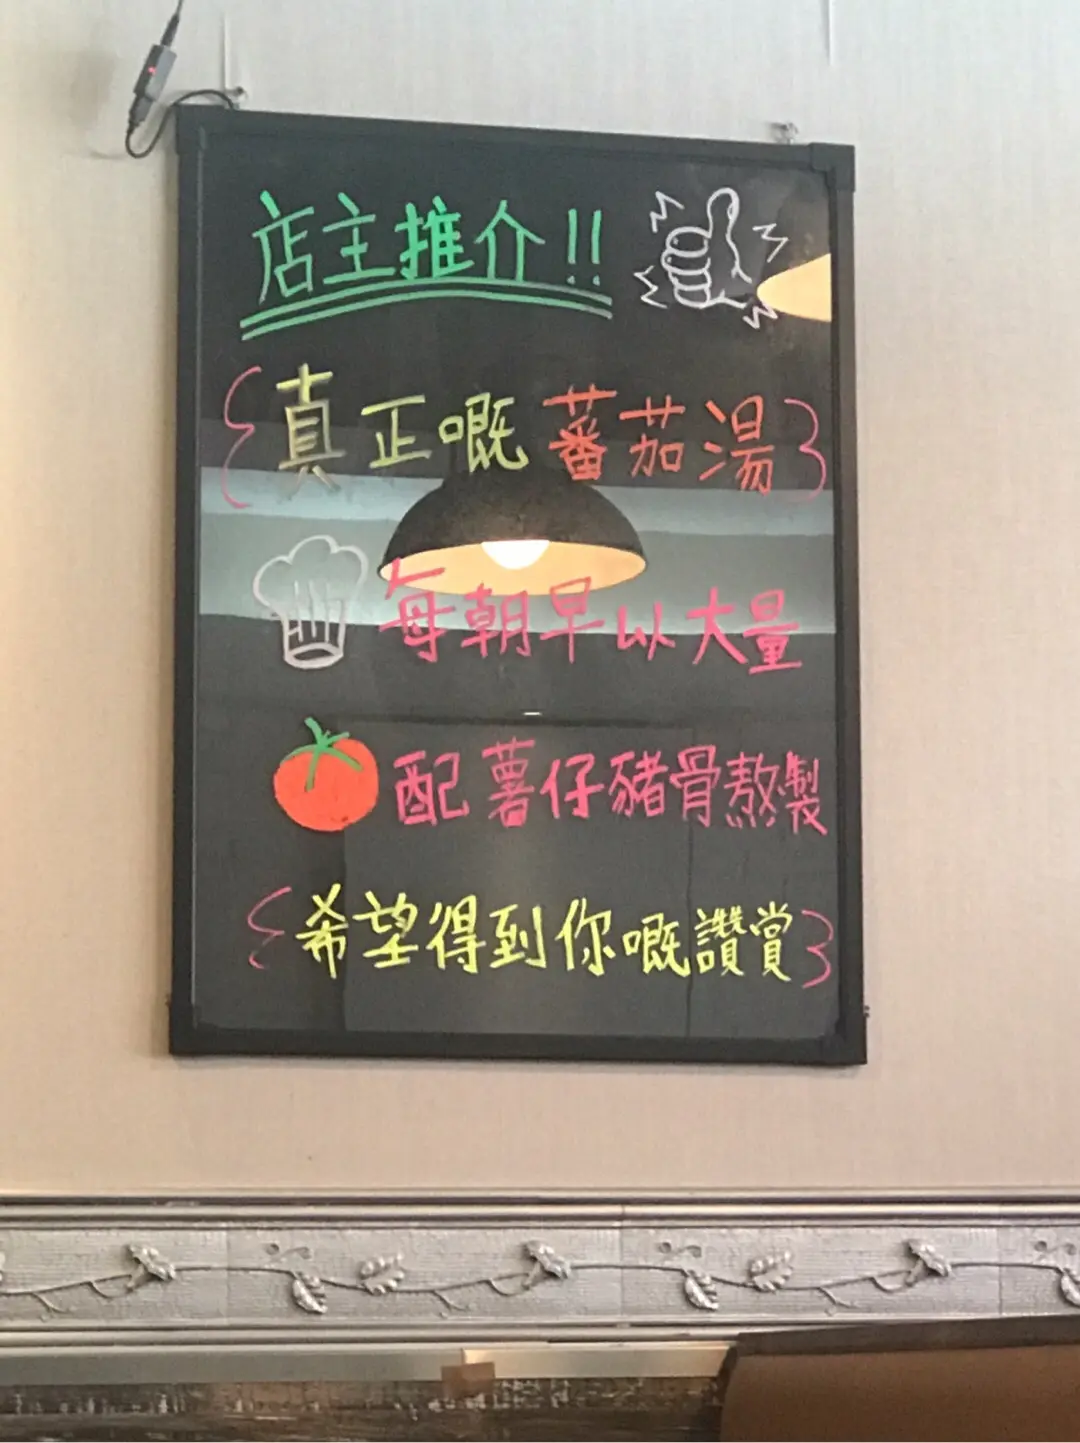 店主推介!!
真正嘅蕃茄湯
每朝早以大量
配薯仔豬骨熬製
希望得到你嘅讚賞